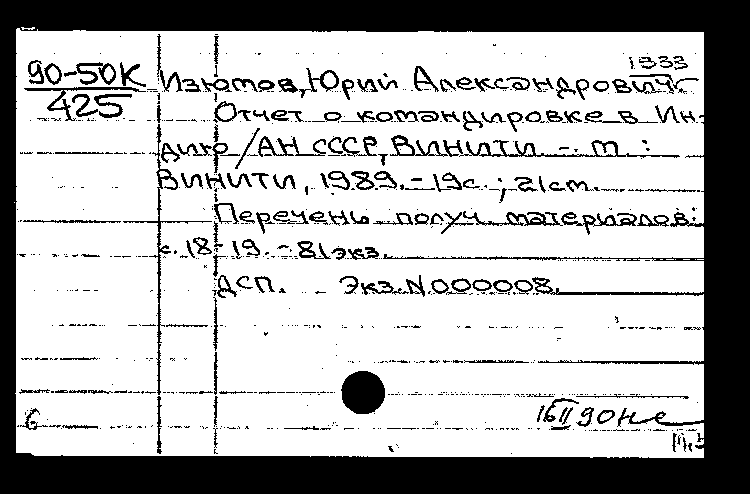 1933
90-50К Изютов, Юрий Александрович
425 Отчет о командировке в Ин-
дию / АН СССР, ВИНИТИ. -. т. :
ВИНИТИ, 1989. - 19с. ; 21см.
Перечень получ. материалов:
с. 18-19. - 81экз.
ДСП. - Экз. N000008.
б 16 II 90